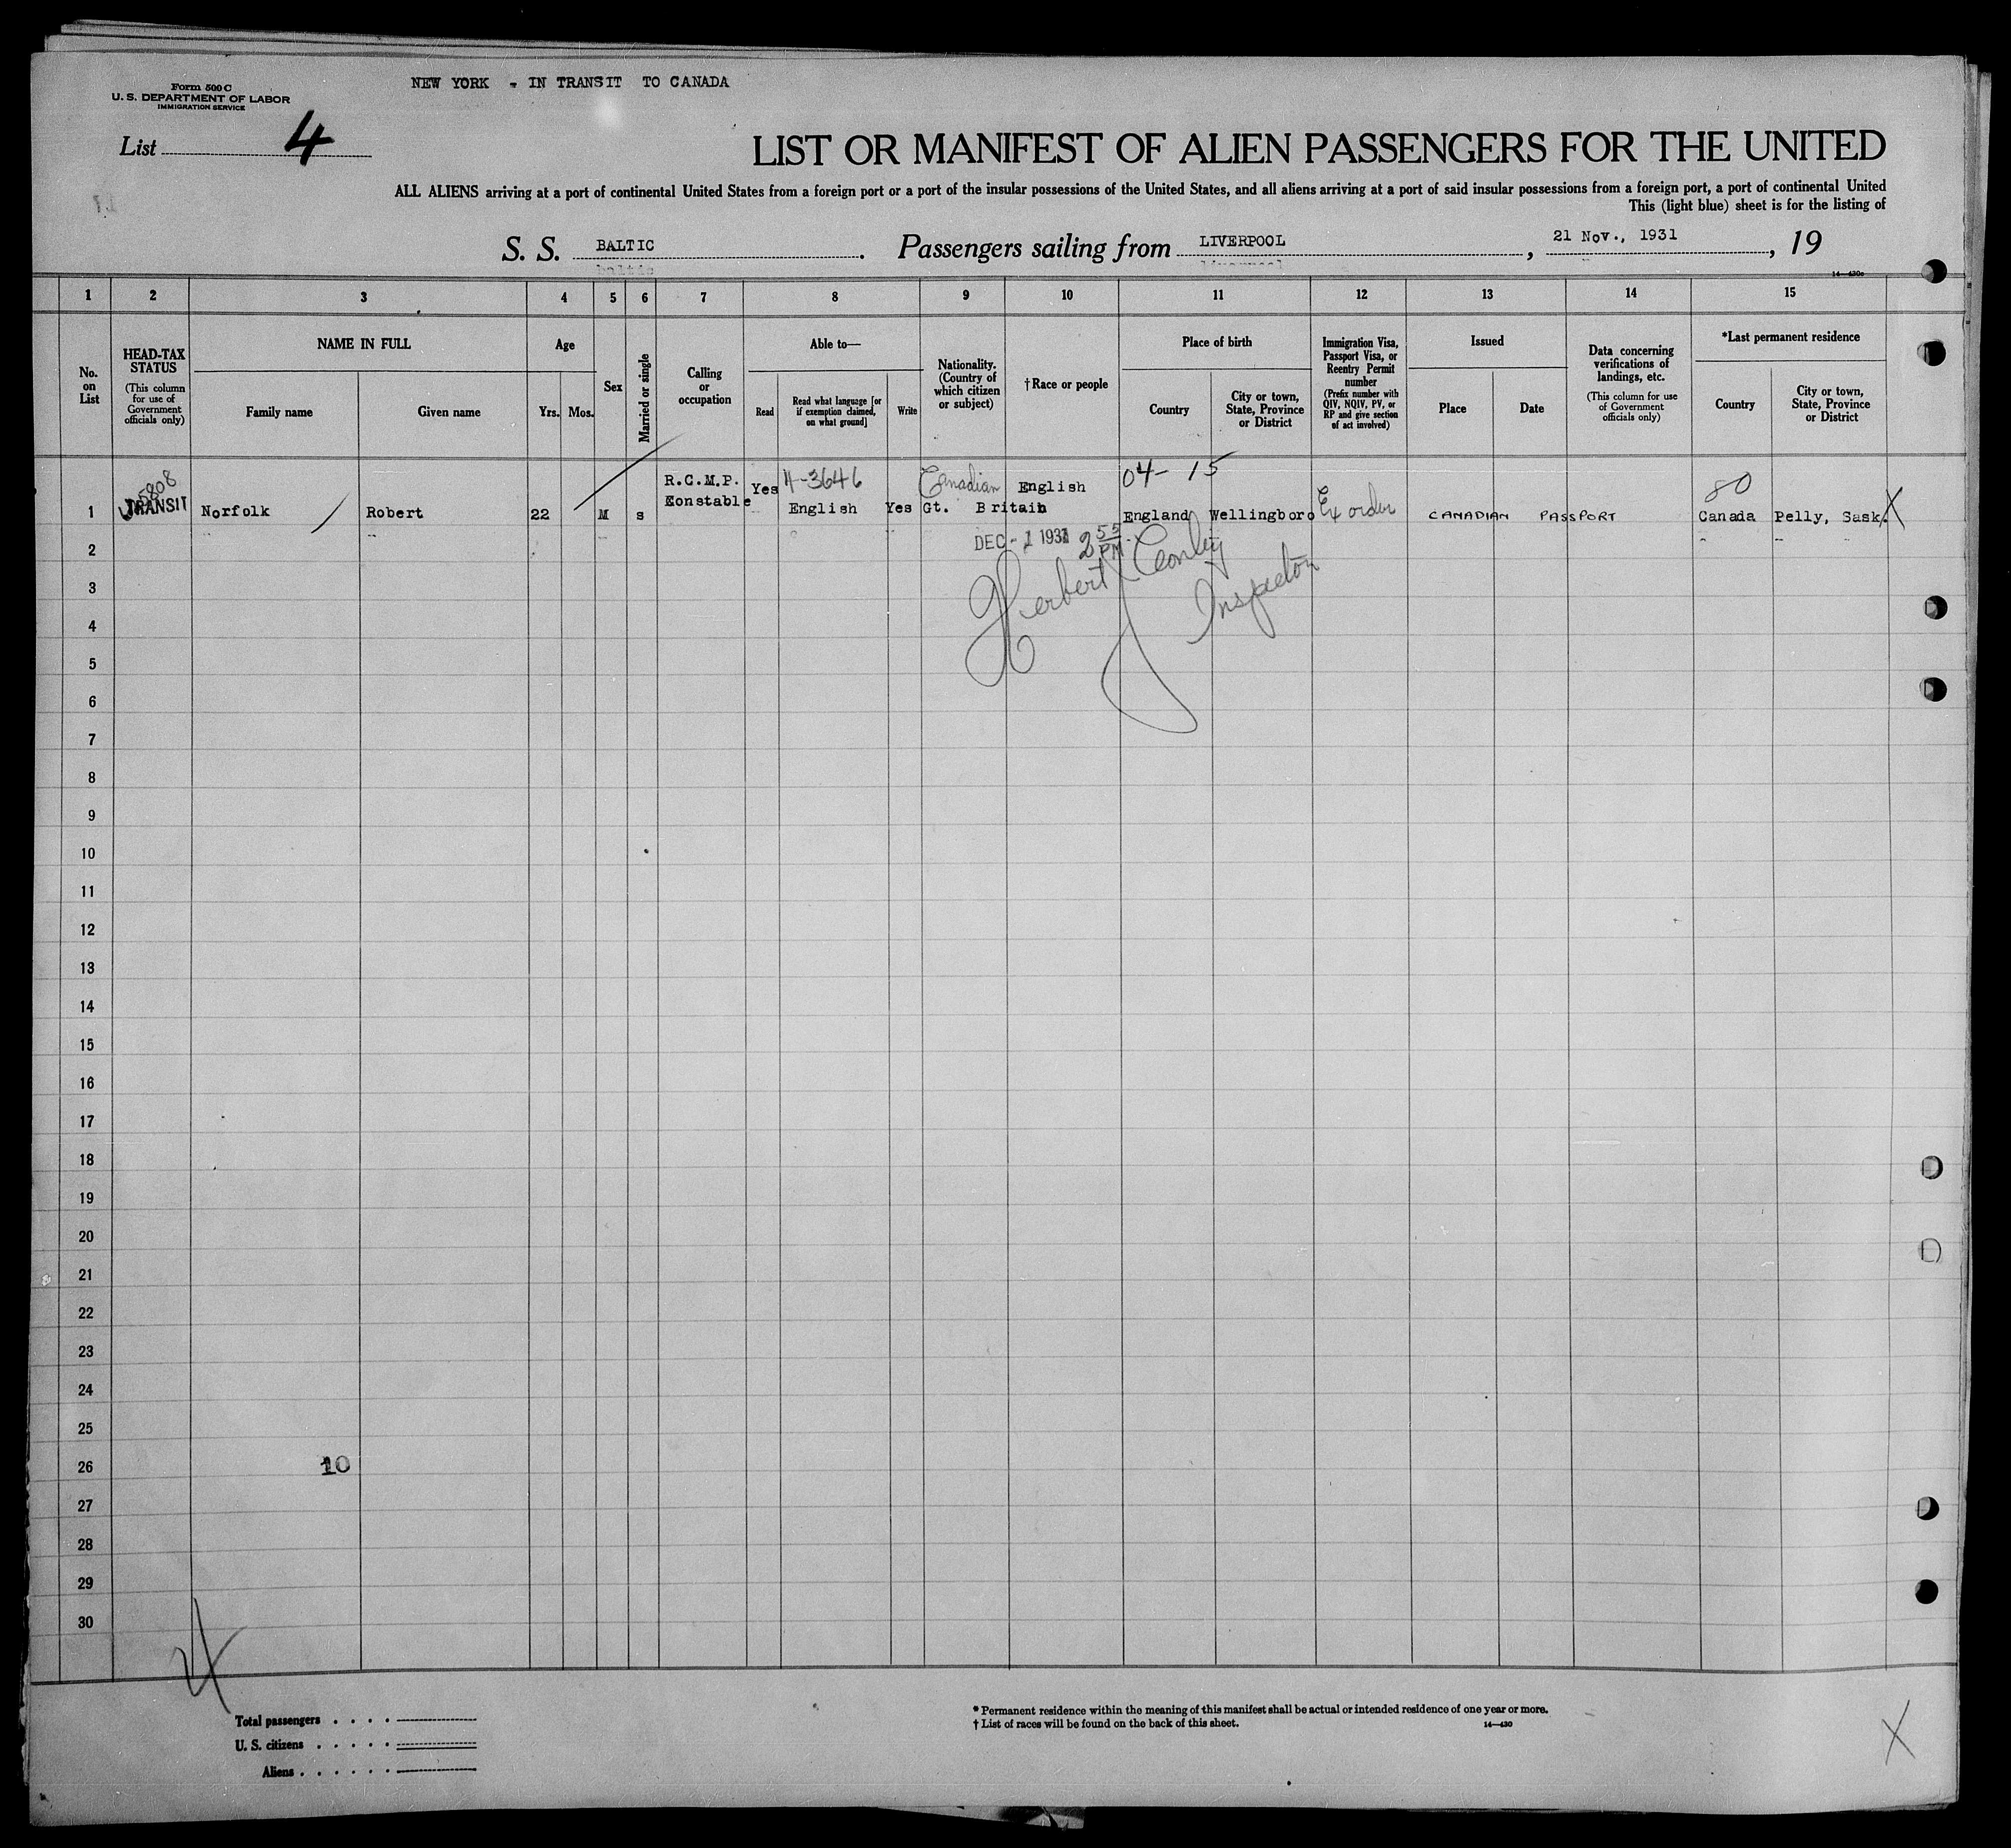 Form 500 C
U. S. DEPARTMENT OF LABOR
IMMIGRATION SERVICE
NEW YORK - IN TRANSIT TO CANADA
List 4
LIST OR MANIFEST OF ALIEN PASSENGERS FOR THE UNITED
ALL ALIENS arriving at a port of continental United States from a foreign port or a port of the insular possessions of the United States, and all aliens arriving at a port of said insular possessions from a foreign port, a port of continental United
This (light blue) sheet is for the listing of
S. S. BALTIC . Passengers sailing from LIVERPOOL , 21 Nov., 1931 , 19
14—430c
1 2 3 4 5 6 7 8 9 10 11 12 13 14 15
No. on List
HEAD-TAX STATUS
(This column for use of Government officials only)
NAME IN FULL
Family name
Given name
Age
Yrs. Mos.
Sex
Married or single
Calling or occupation
Able to—
Read
Read what language [or if exemption claimed, on what ground]
Write
Nationality. (Country of which citizen or subject)
†Race or people
Place of birth
Country
City or town, State, Province or District
Immigration Visa, Passport Visa, or Reentry Permit number
(Prefix number with QIV, NQIV, PV, or RP and give section of act involved)
Issued
Place
Date
Data concerning verifications of landings, etc.
(This column for use of Government officials only)
*Last permanent residence
Country
City or town, State, Province or District
5808 R.C.M.P. 4-3646 Canadian English 04- 15 80
1 TRANSIT Norfolk Robert 22 M s Constable Yes English Yes Gt. Britain England Wellingboro Ex order CANADIAN PASSPORT Canada Pelly, Sask. X
2 DEC - 1 1931 2 55 PM
3 Herbert Conley
4 Inspector
5
6
7
8
9
10
11
12
13
14
15
16
17
18
19
20
21
22
23
24
25
26 10
27
28
29
30
4
Total passengers . . . .
U. S. citizens . . . . .
Aliens . . . . . .
* Permanent residence within the meaning of this manifest shall be actual or intended residence of one year or more.
† List of races will be found on the back of this sheet. 14—430
X